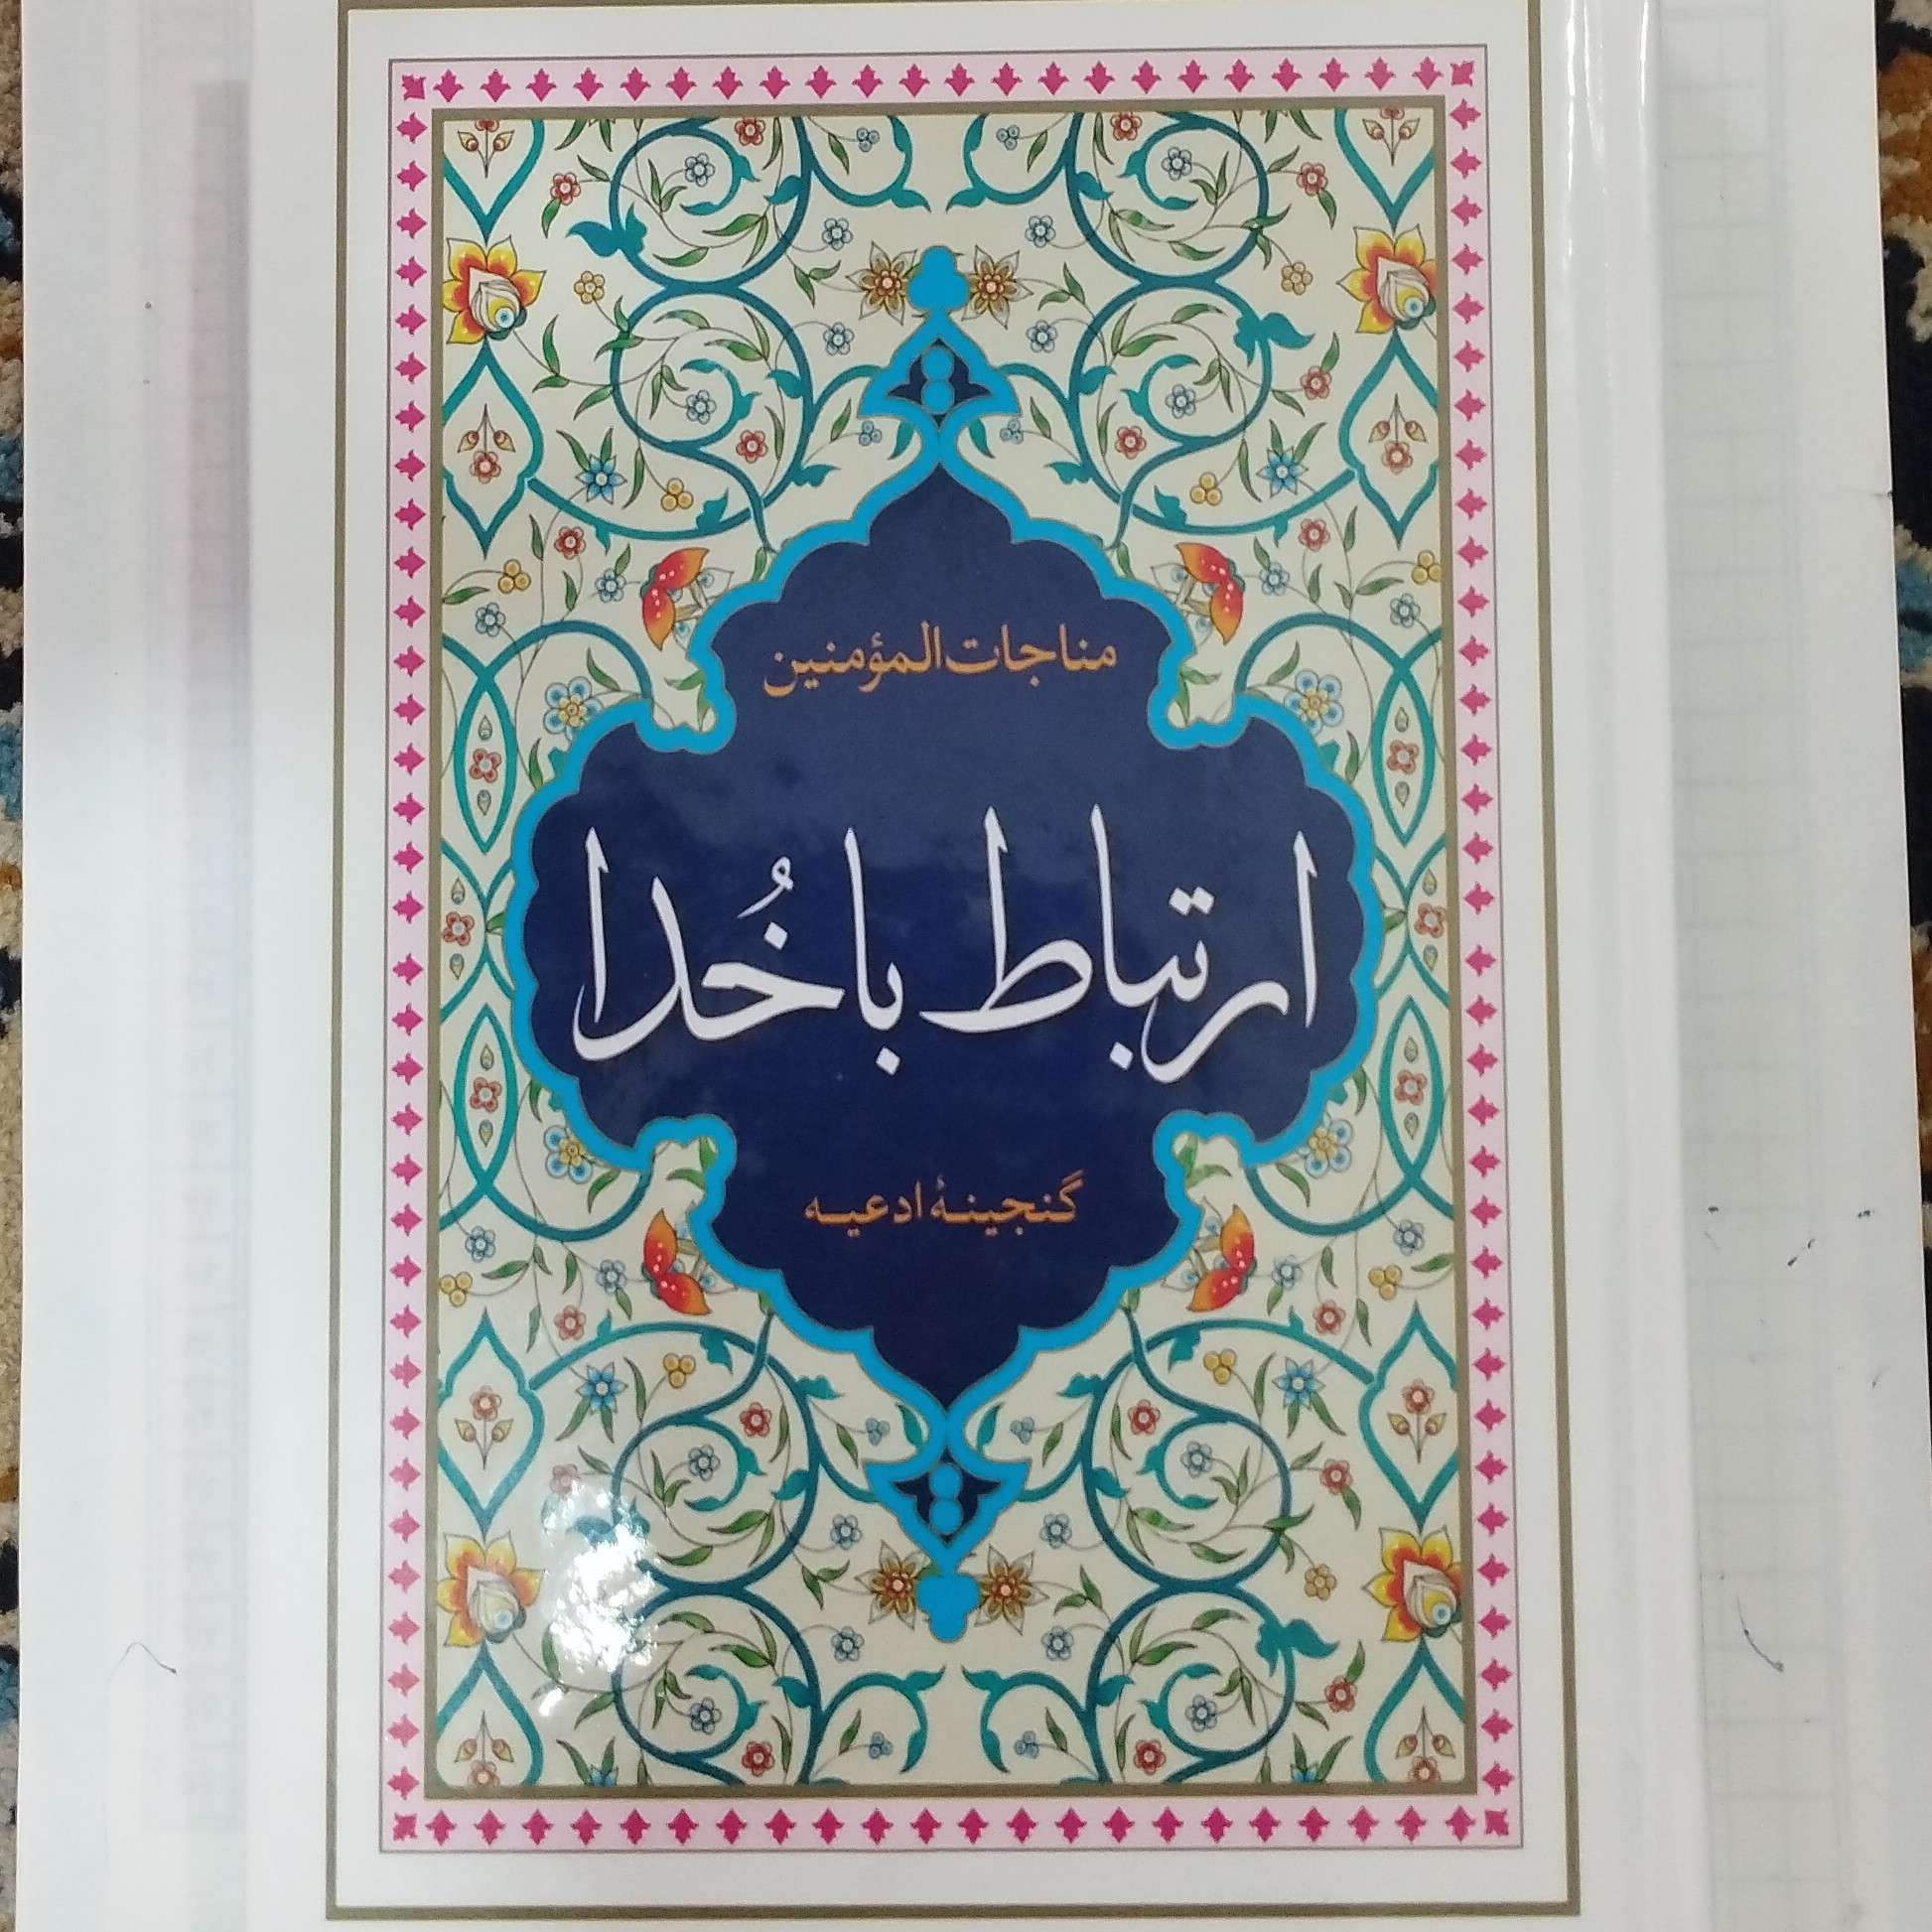 مناجات المؤمنین
ارتباط با خُدا
گنجینهٔ ادعیه